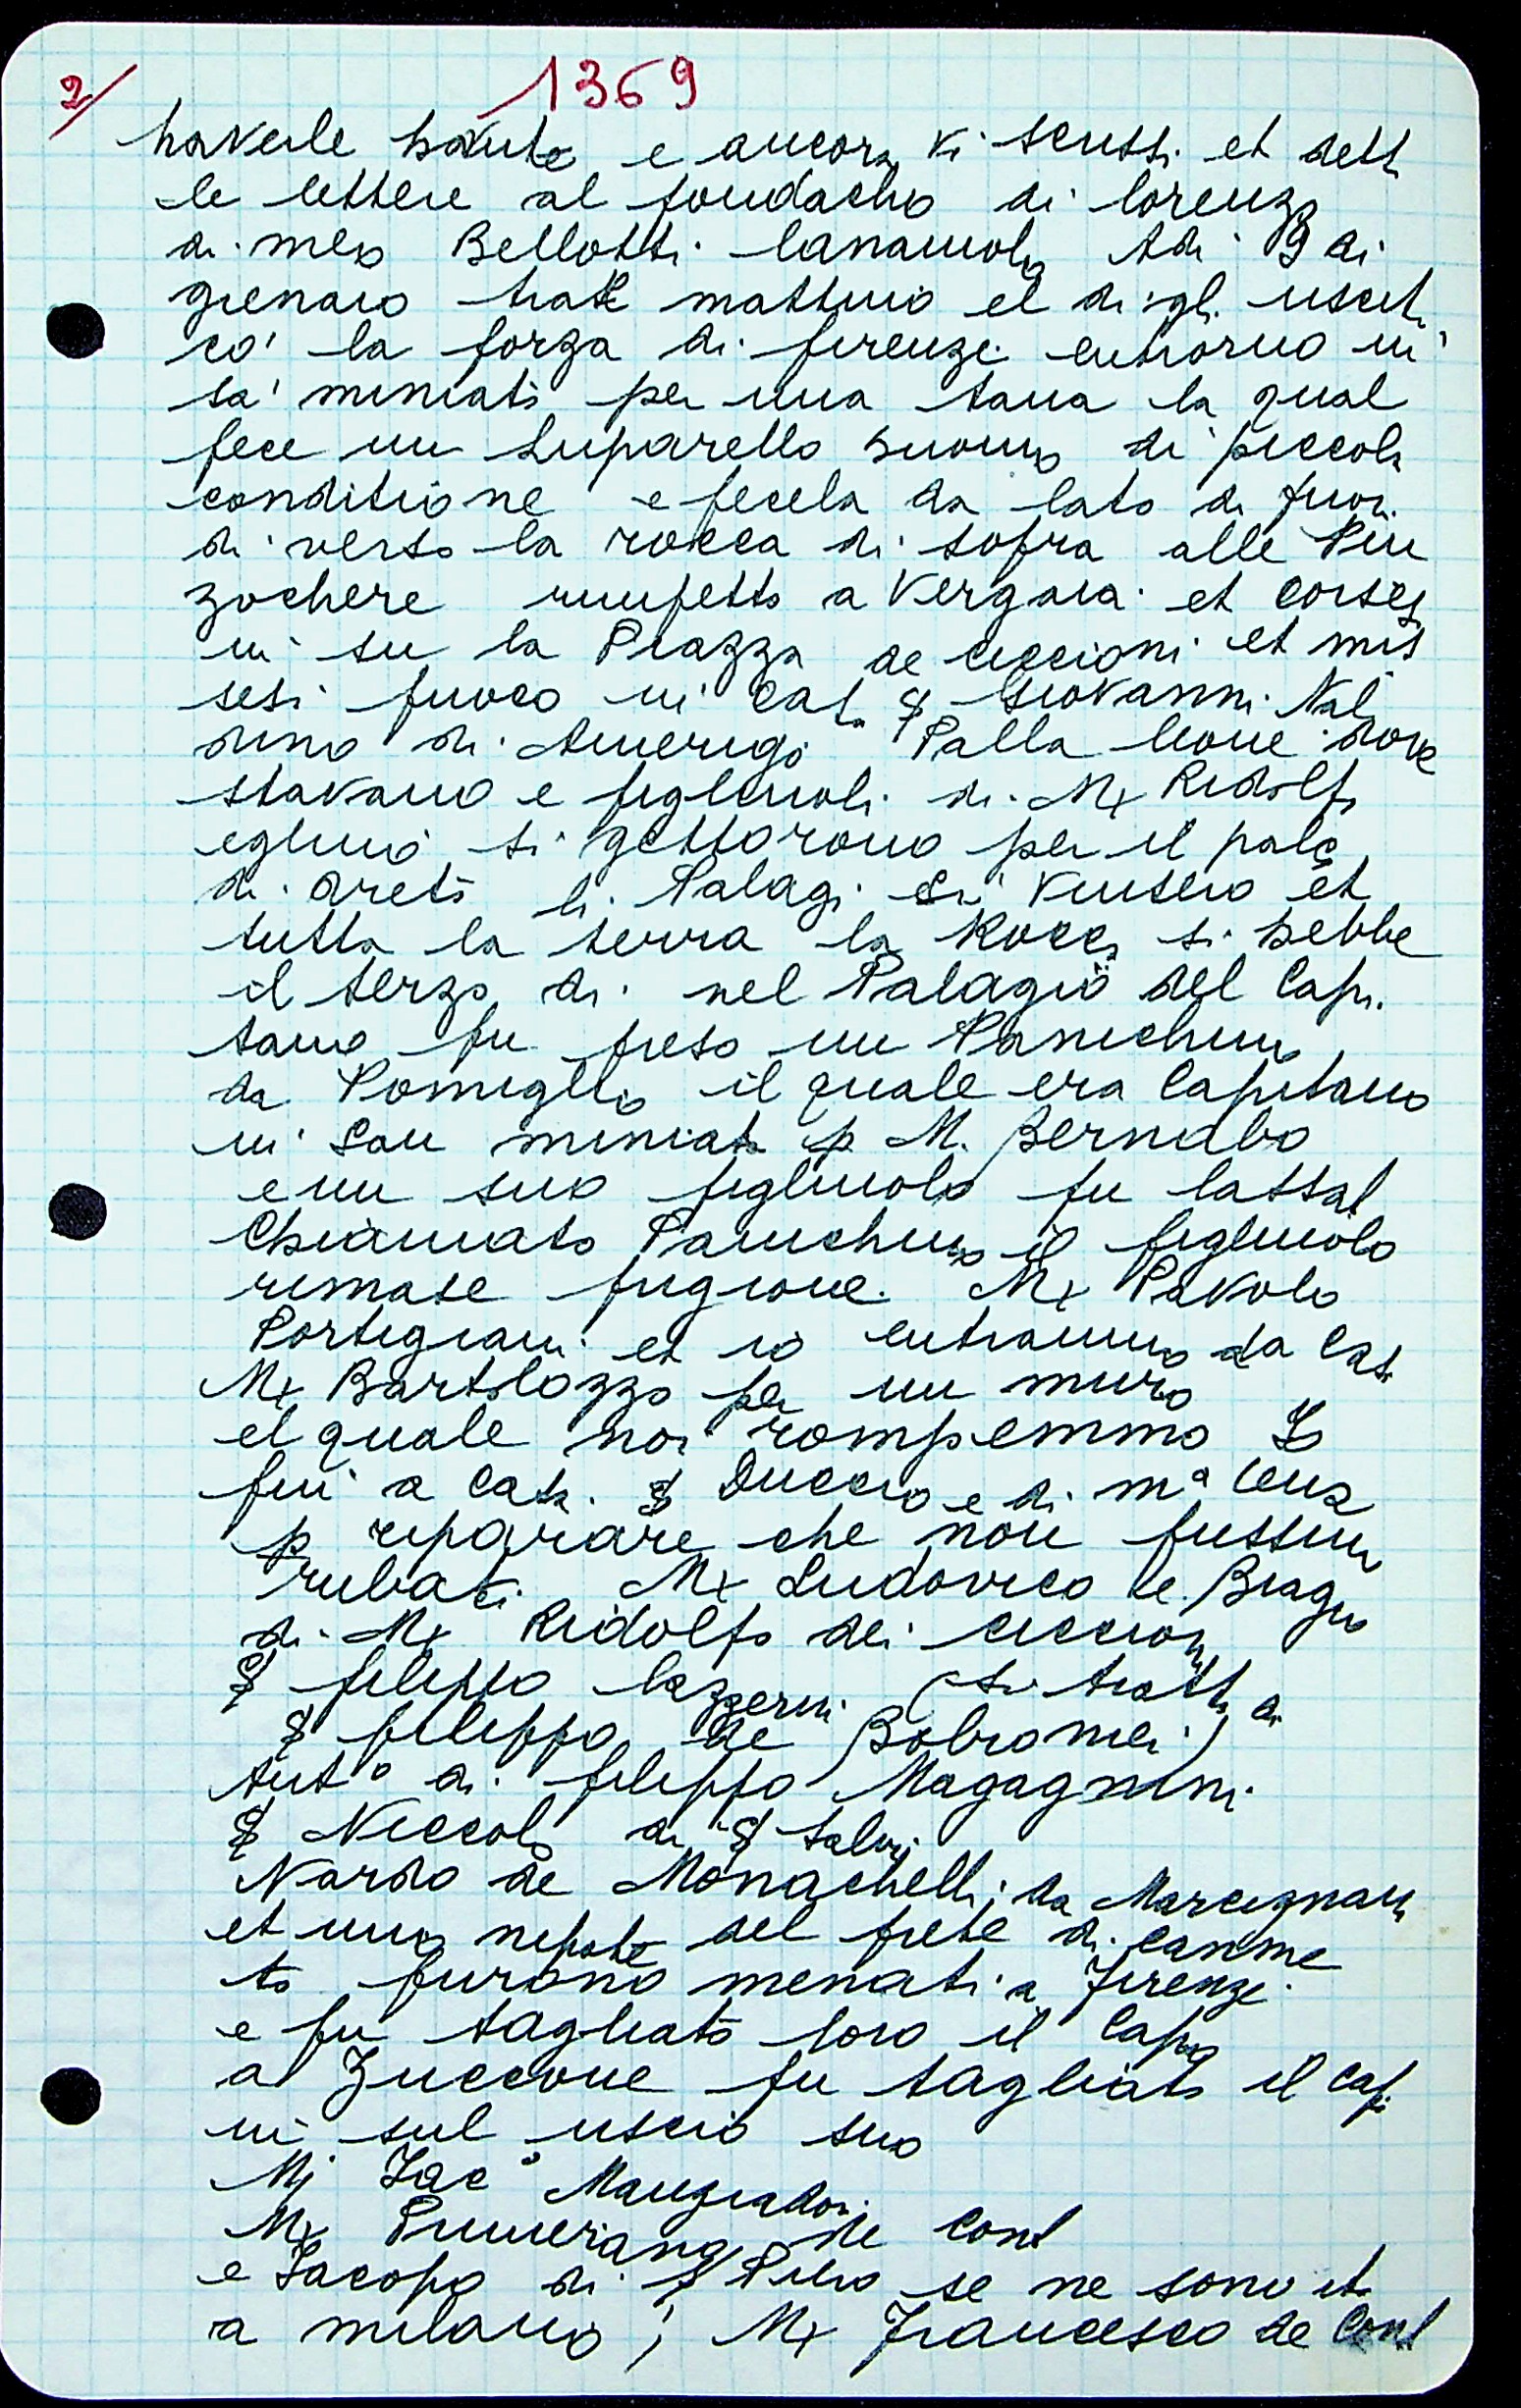 2/ 1369
haverle havute e ancora vi scrissi et detti
le lettere al fondacho di lorenzo
di meo Bellotti lanaiuolo Adi 9 di
gienaio mattino el di gli usciti
co' la forza di firenze entrorno in
sa' miniato per una tana la qual
fece un Luparello huomo di piccola
conditione e fecela da lato di fuori
di verso la rocca di sopra alle Pin
zochere rimpetto a Vergaia et corses
in su la Piazza de ciccioni et mis
sesi fuoco in casa Giovanni Nal
dino di Amerigo Palla leone dove
stavano e figliuoli di Mx Ridolfo
eglino si gettorono per il palco
di dreto li Palagi si vinsero et
tutta la terra la Rocca si hebbe
il terzo di nel Palagio del Capi
tano fu preso un Panichino
da Pomiglio il quale era Capitano
in San miniato p M. Bernabo
e un suo figliuolo fu lassat
Chiamato Panichino il figliuolo
rimase prigione. Mx Pavolo
Portigiani et io entrammo da casa
Mx Bartolozzo per un muro
el quale noi rompemmo Io
fui a casa Duccio e di mª Cena
p riparare che non fussino
rubati Mx Ludovico e Biagio
di Mx Ridolfo dei ciccioni
filippo lazzerini (si tratta di
filippo de Bobromei)
Antº di filippo Magagnini
Niccolo di Salvi
Nardo de Monachelli da Marcignana
et uno nipote del prete di canne
to furono menati a firenze
e fu tagliato loro il Capo
a Zuccone fu tagliato il capo
in sul uscio suo
Mx Iacº Mangiadori
Mx Pimerano de Cont
e Iacopo di Piero se ne sono it
a milano; Mx Francesco de Cont